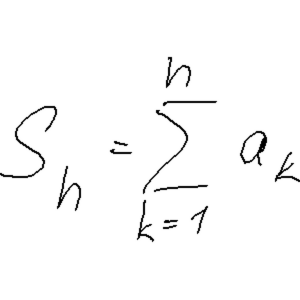 $S_n = \sum_{k=1}^{n} a_k$